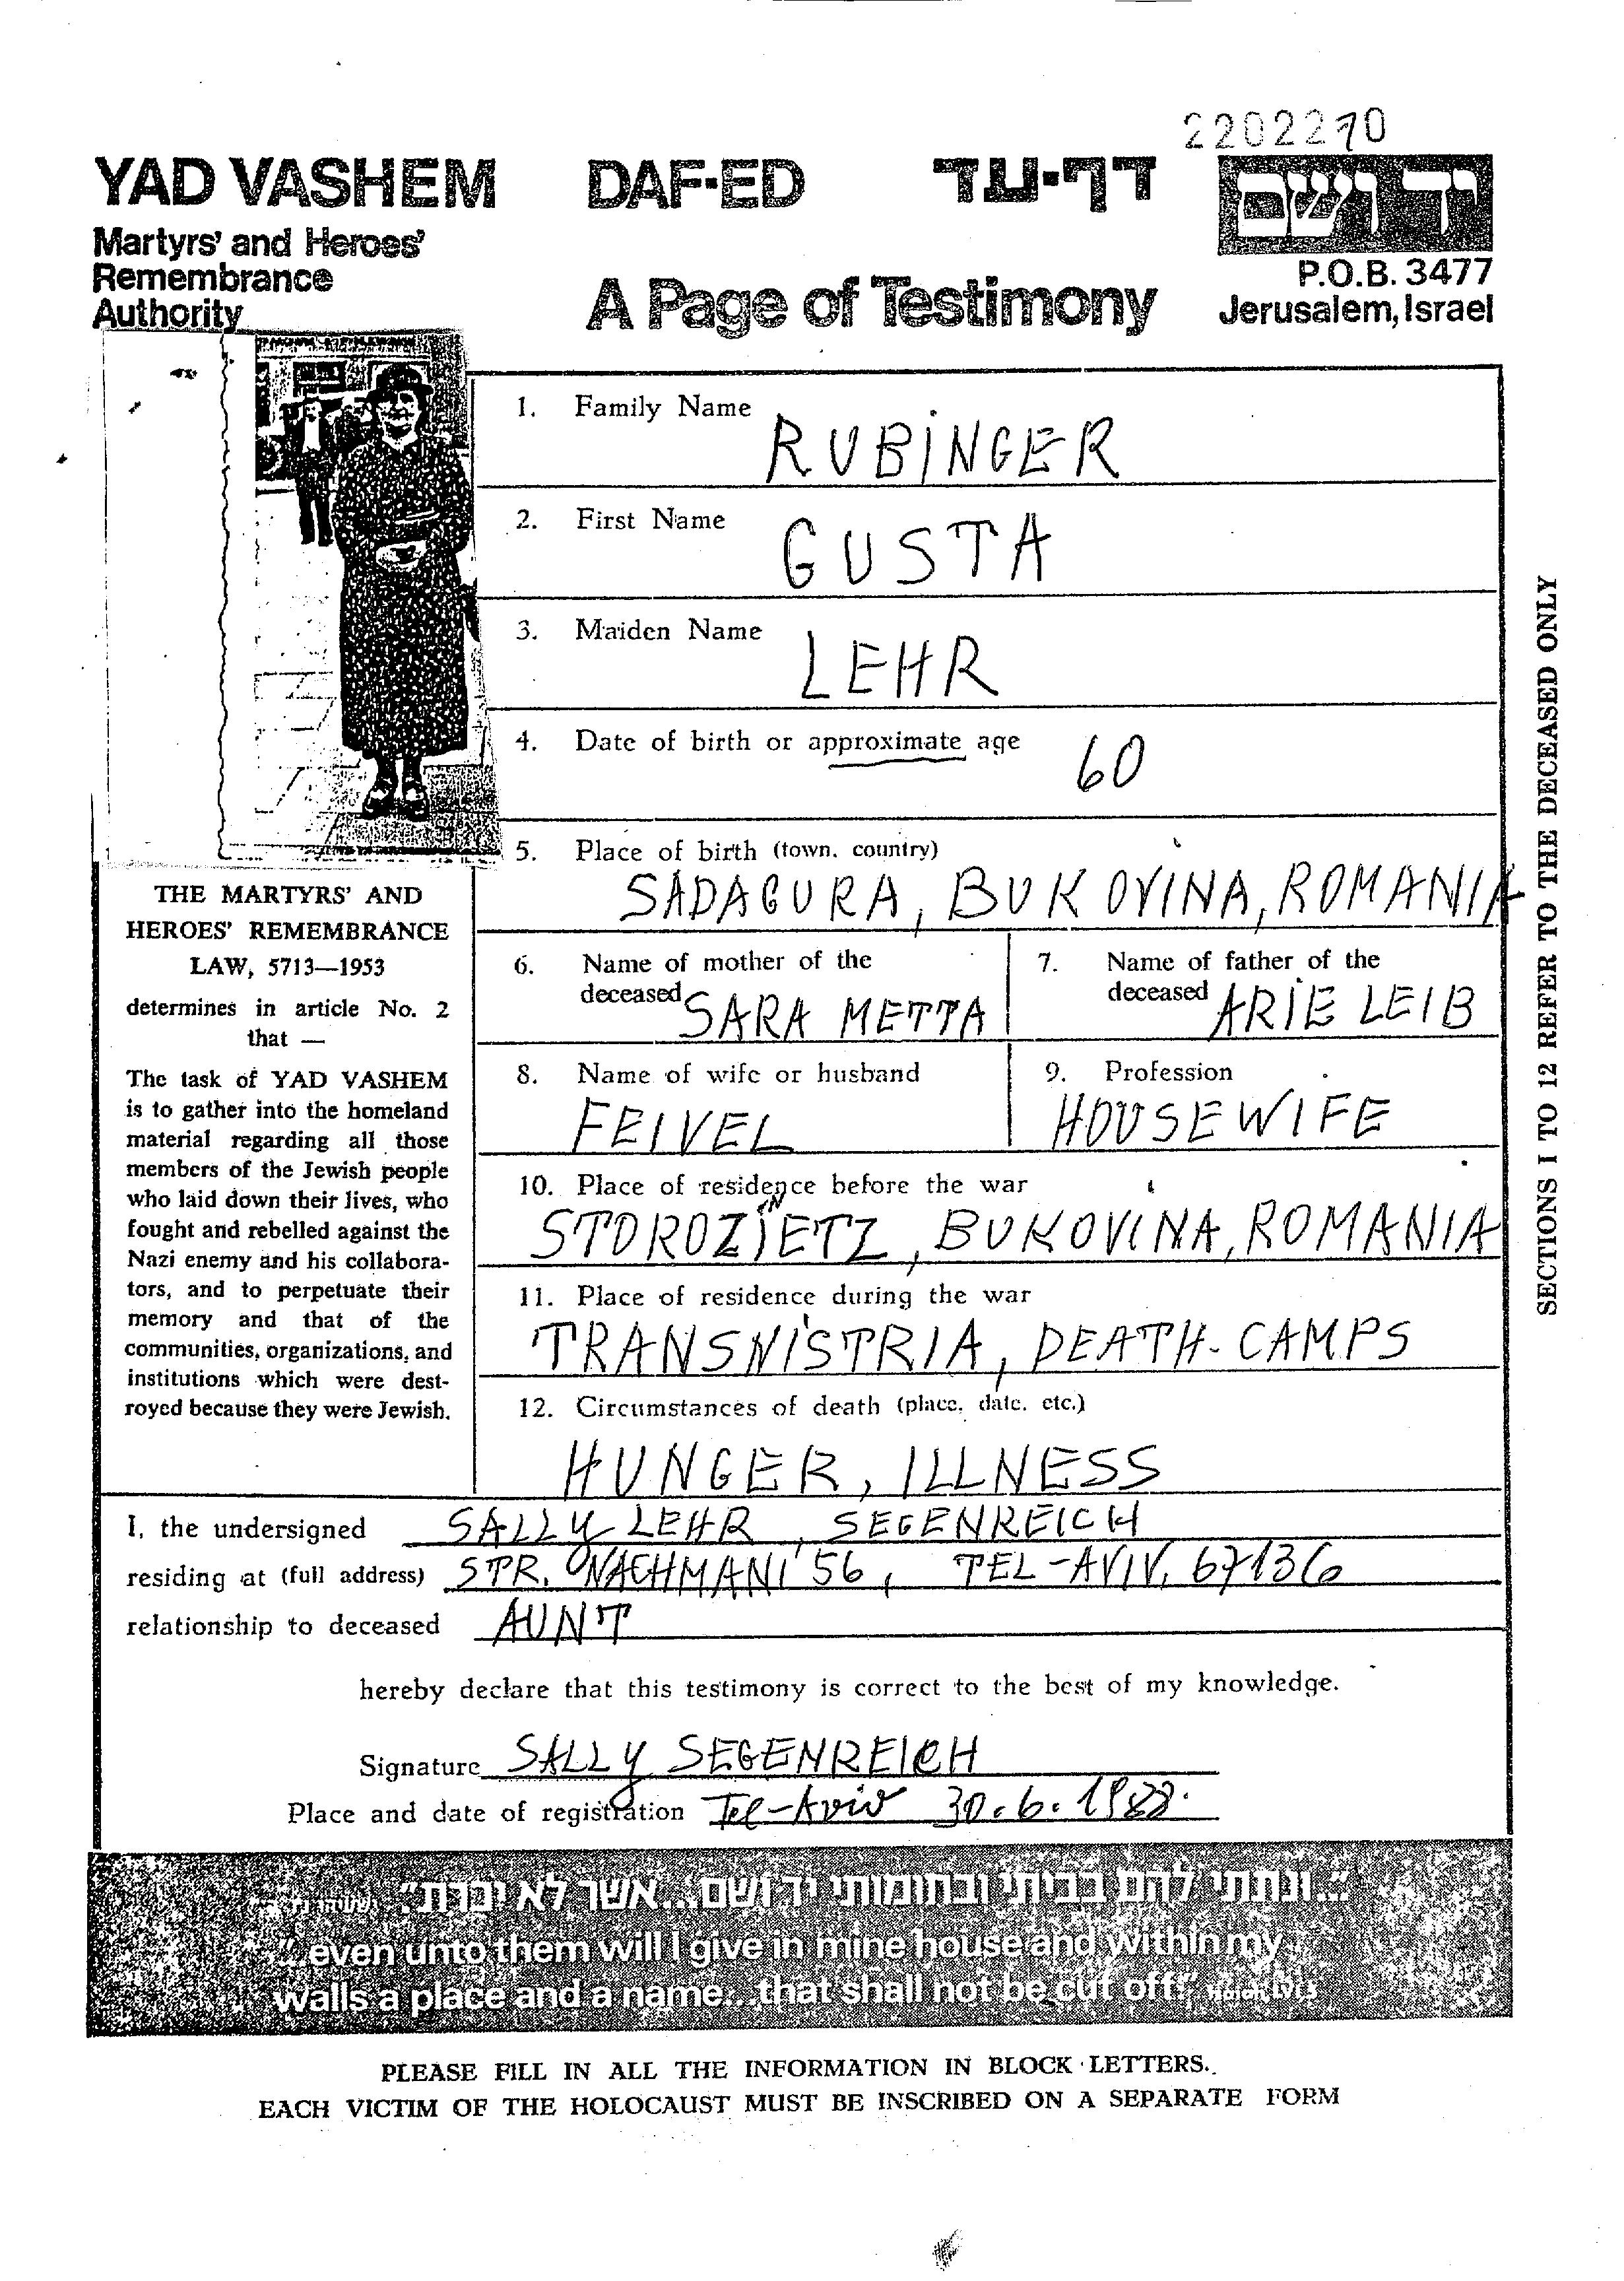 2202270
YAD VASHEM DAF-ED דף-עד ידושם
Martyrs' and Heroes'
Remembrance
Authority
A Page of Testimony
P.O.B. 3477
Jerusalem, Israel
1. Family Name RUBINGER
2. First Name GUSTA
3. Maiden Name LEHR
4. Date of birth or approximate age 60
5. Place of birth (town, country)
SADAGURA, BUKOVINA, ROMANIA
6. Name of mother of the
deceased SARA METTA
7. Name of father of the
deceased ARIE LEIB
8. Name of wife or husband
FEIVEL
9. Profession
HOUSEWIFE
10. Place of residence before the war
STOROZINIETZ, BUKOVINA, ROMANIA
11. Place of residence during the war
TRANSNISTRIA, DEATH-CAMPS
12. Circumstances of death (place, date, etc.)
HUNGER, ILLNESS
THE MARTYRS' AND
HEROES' REMEMBRANCE
LAW, 5713—1953
determines in article No. 2
that —
The task of YAD VASHEM
is to gather into the homeland
material regarding all those
members of the Jewish people
who laid down their lives, who
fought and rebelled against the
Nazi enemy and his collabora-
tors, and to perpetuate their
memory and that of the
communities, organizations, and
institutions which were dest-
royed because they were Jewish.
SECTIONS 1 TO 12 REFER TO THE DECEASED ONLY
I, the undersigned SALLY LEHR, SEGENREICH
residing at (full address) STR. NACHMANI 56, TEL-AVIV, 67136
relationship to deceased AUNT
hereby declare that this testimony is correct to the best of my knowledge.
Signature SALLY SEGENREICH
Place and date of registration Tel-Aviv 30.6.1988.
"...ונתתי להם בביתי ובחומותי יד ושם...אשר לא יכרת"
"...even unto them will I give in mine house and within my
walls a place and a name...that shall not be cut off." Isaiah, LVI, 5
PLEASE FILL IN ALL THE INFORMATION IN BLOCK LETTERS.
EACH VICTIM OF THE HOLOCAUST MUST BE INSCRIBED ON A SEPARATE FORM